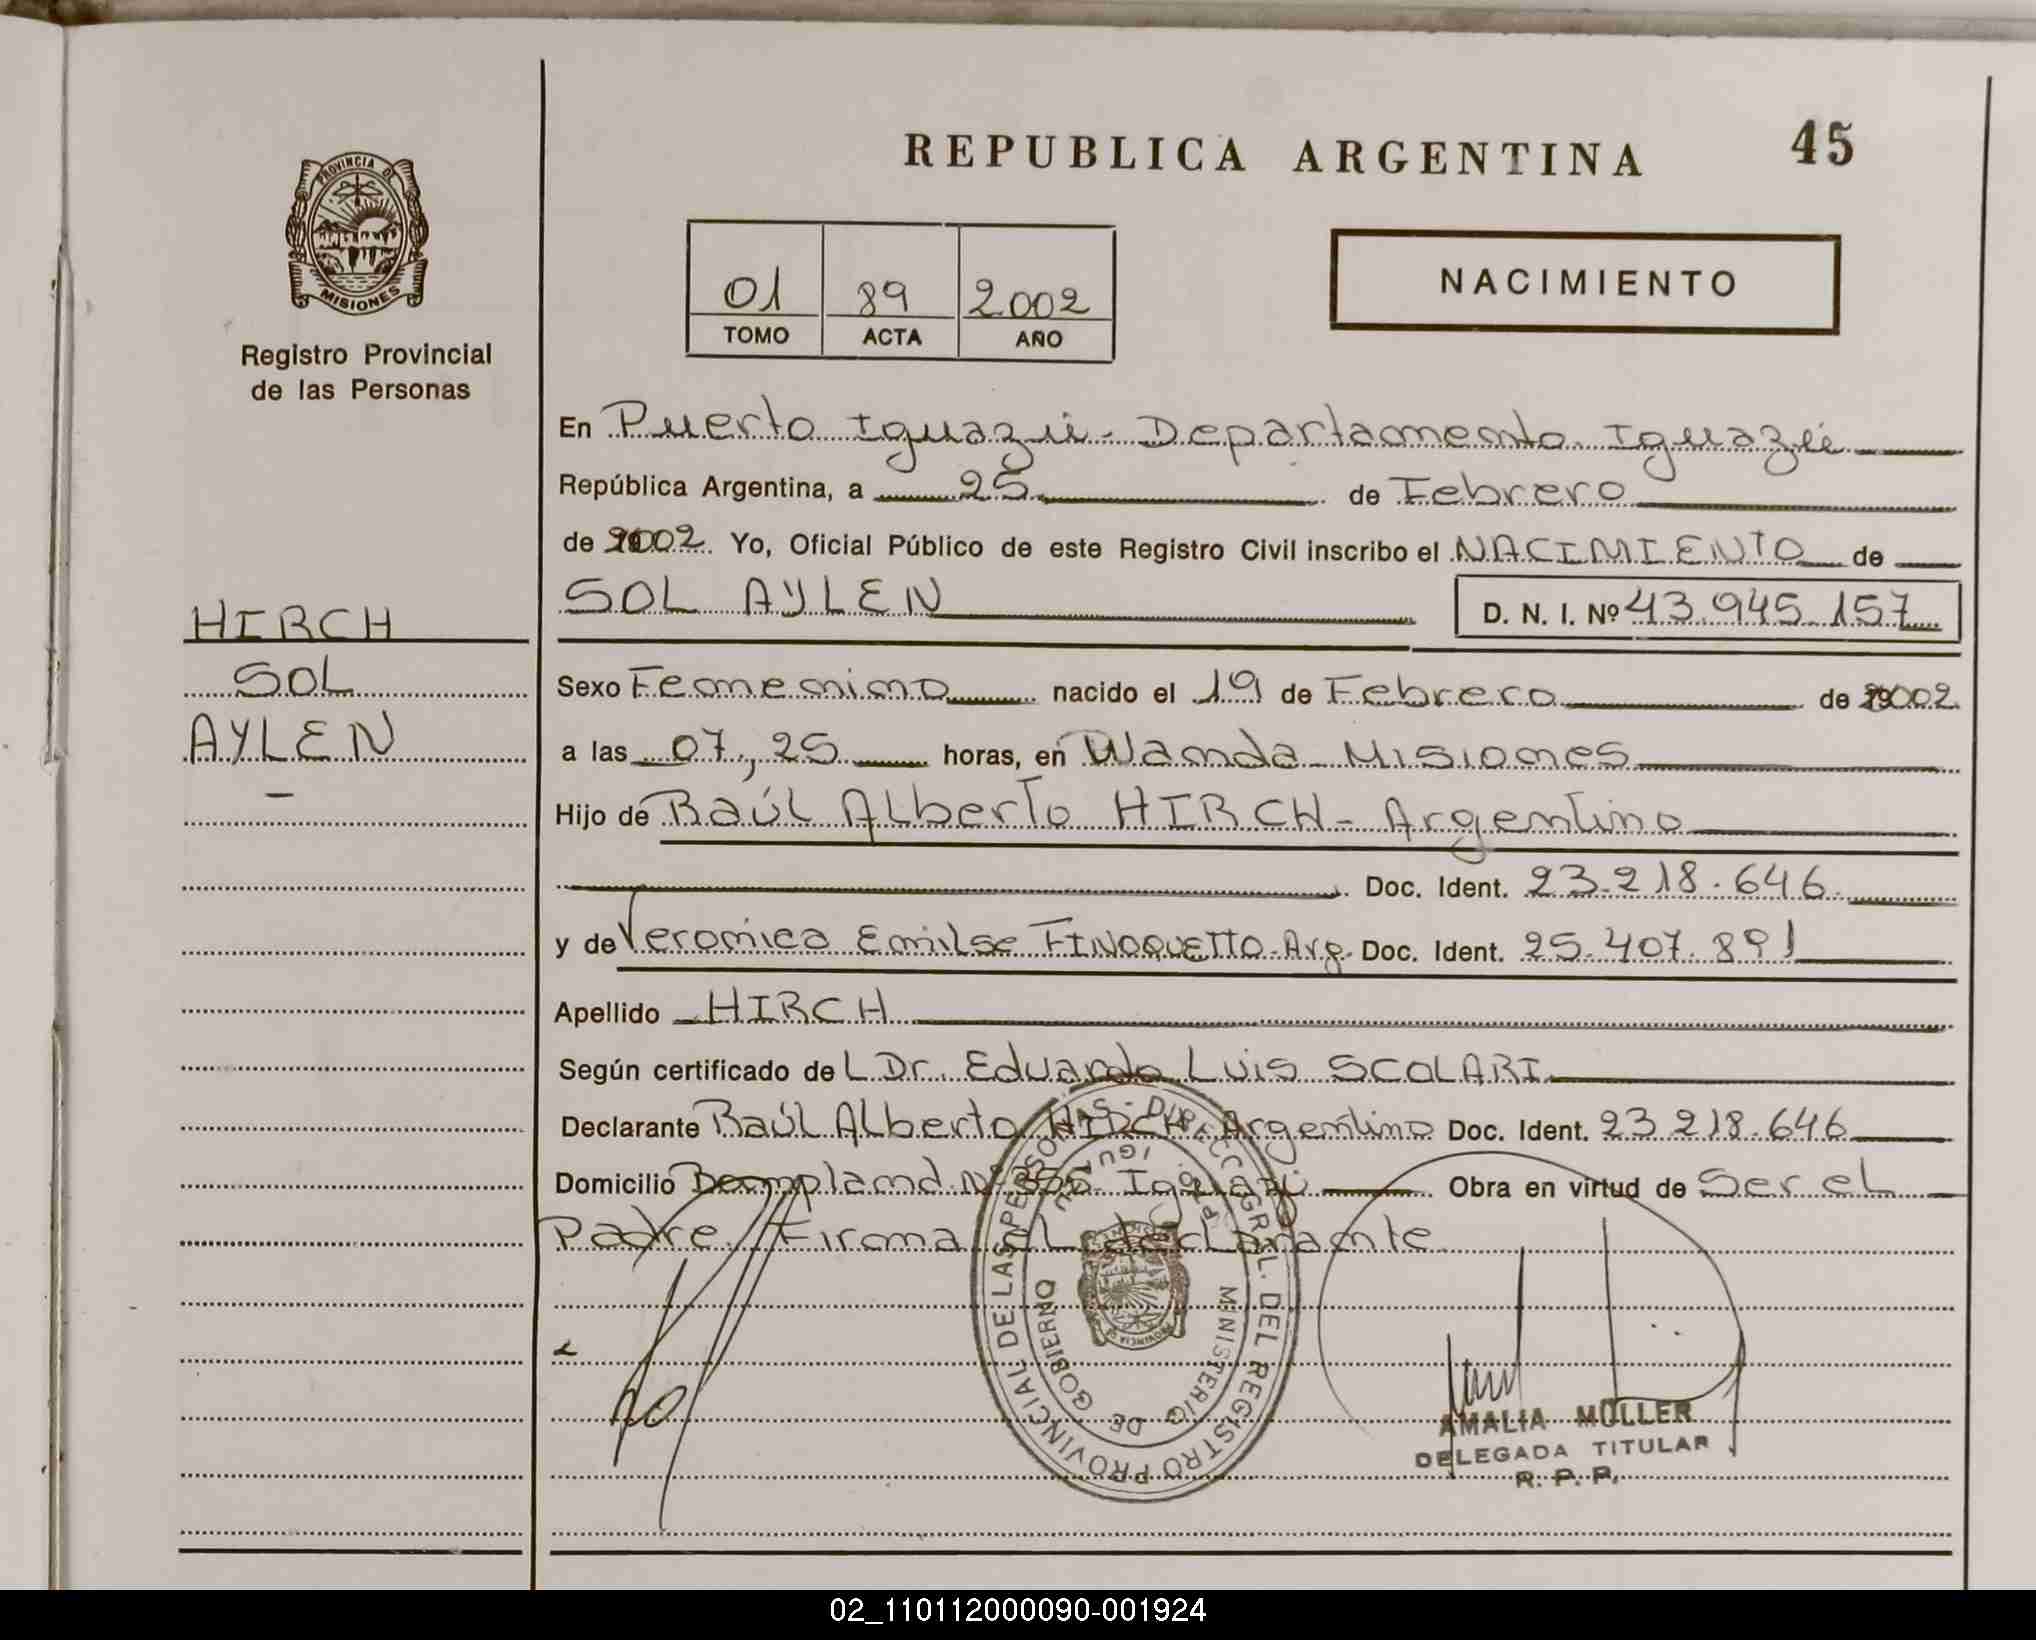 REPUBLICA ARGENTINA 45
PROVINCIA DE
MISIONES
Registro Provincial
de las Personas
01 89 2.002
TOMO ACTA AÑO
NACIMIENTO
HIRCH
SOL
AYLEN
En Puerto Iguazú - Departamento Iguazú
República Argentina, a 25 de Febrero
de 2002 Yo, Oficial Público de este Registro Civil inscribo el NACIMIENTO de
SOL AYLEN D. N. I. Nº 43.945.157
Sexo Femenino nacido el 19 de Febrero de 2002
a las 07,25 horas, en Wanda - Misiones
Hijo de Raúl Alberto HIRCH - Argentino
Doc. Ident. 23.218.646
y de Veronica Emilse FINOQUETTO - Arg. Doc. Ident. 25.407.891
Apellido HIRCH
Según certificado de L Dr. Eduardo Luis SCOLARI
Declarante Raúl Alberto HIRCH Argentino Doc. Ident. 23.218.646
Domicilio Bompland Nº 356 Iguazú Obra en virtud de Ser el
Padre. Firma el declarante
DIRECC. GRAL. DEL REGISTRO PROVINCIAL DE LAS PERSONAS -
MINISTERIO DE GOBIERNO
AMALIA MULLER
DELEGADA TITULAR
R. P. P.
02_110112000090-001924